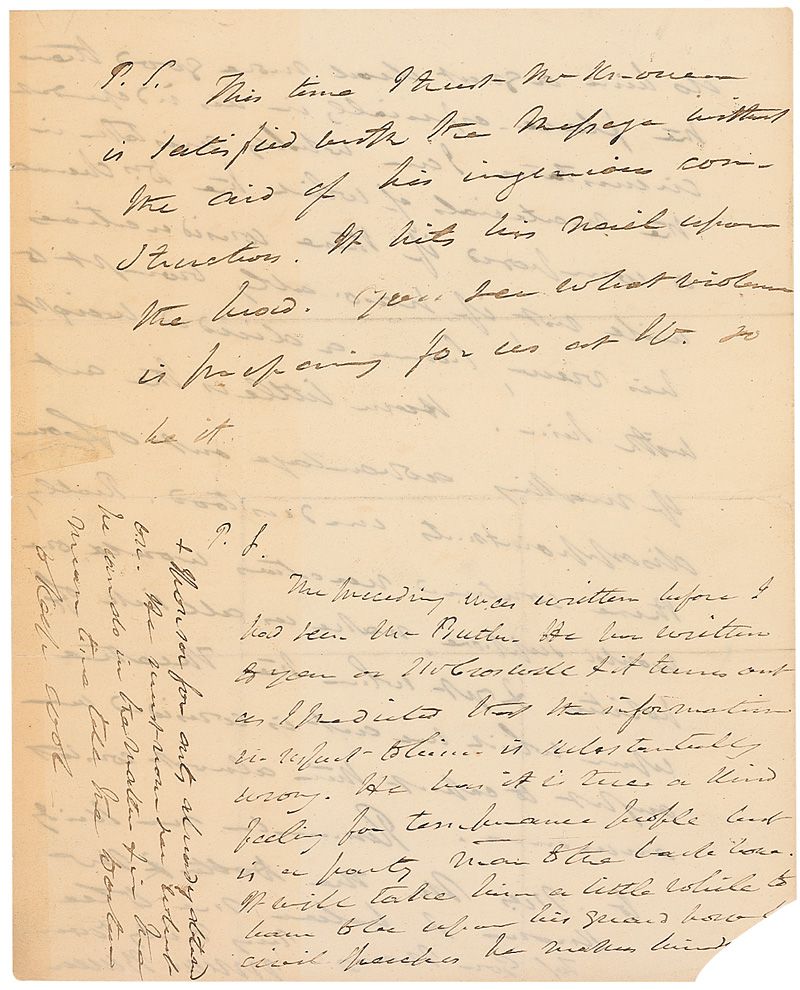 P.S. This time I trust Mr
is satisfied with the Message without
the aid of his ingenious con-
struction. It hits his nail upon
the head. You see what violence
is preparing for us at W. so
be it
P. S.
The preceding was written before I
had seen Mr Butler. He has written
to you or Mr Croswell & it turns out
as I predicted that the information
in respect to him is substantially
wrong. He has it is true a kind
feeling for temperance people but
is a party man to the back bone.
It will take him a little while to
learn to be upon his guard how
civil speeches he makes
& Thomson for only already stated
one. He must now see what
he can do in the matter & in the
mean time tell the
to keep cool